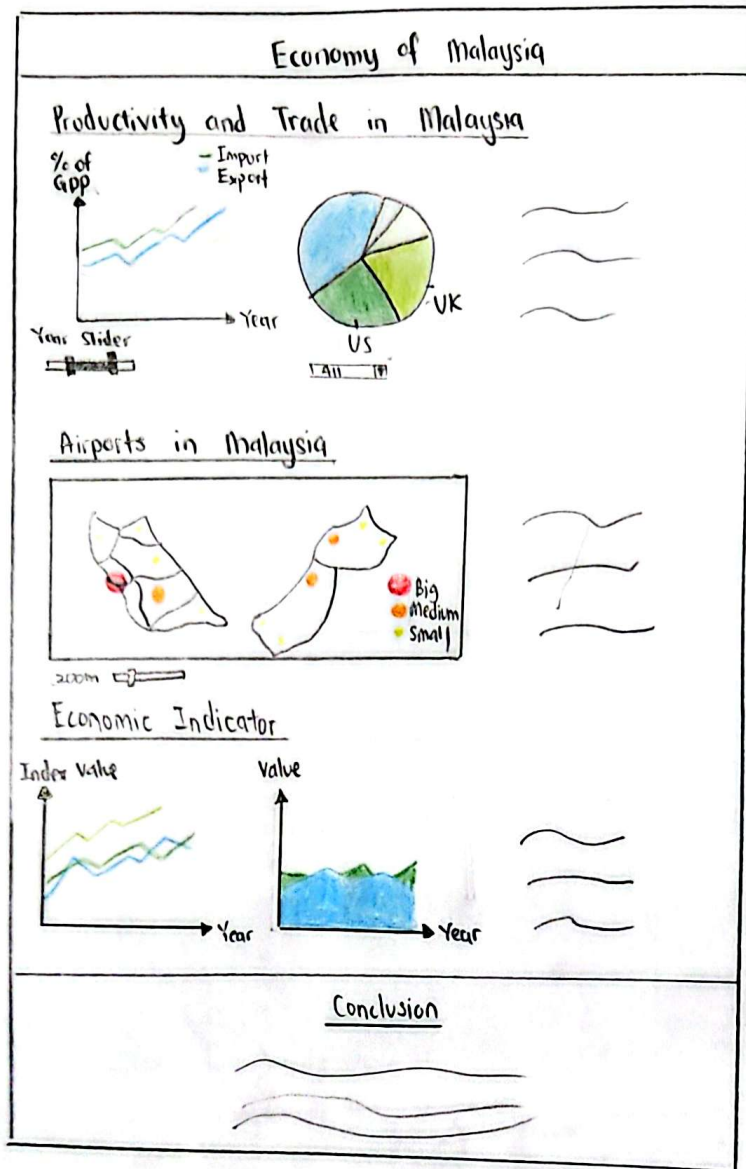 Economy of Malaysia
Productivity and Trade in Malaysia
% of
GDP
Import
Export
Year
Year Slider
UK
US
All
Airports in Malaysia
Big
Medium
Small
200m
Economic Indicator
Index Value
Year
Value
Year
Conclusion